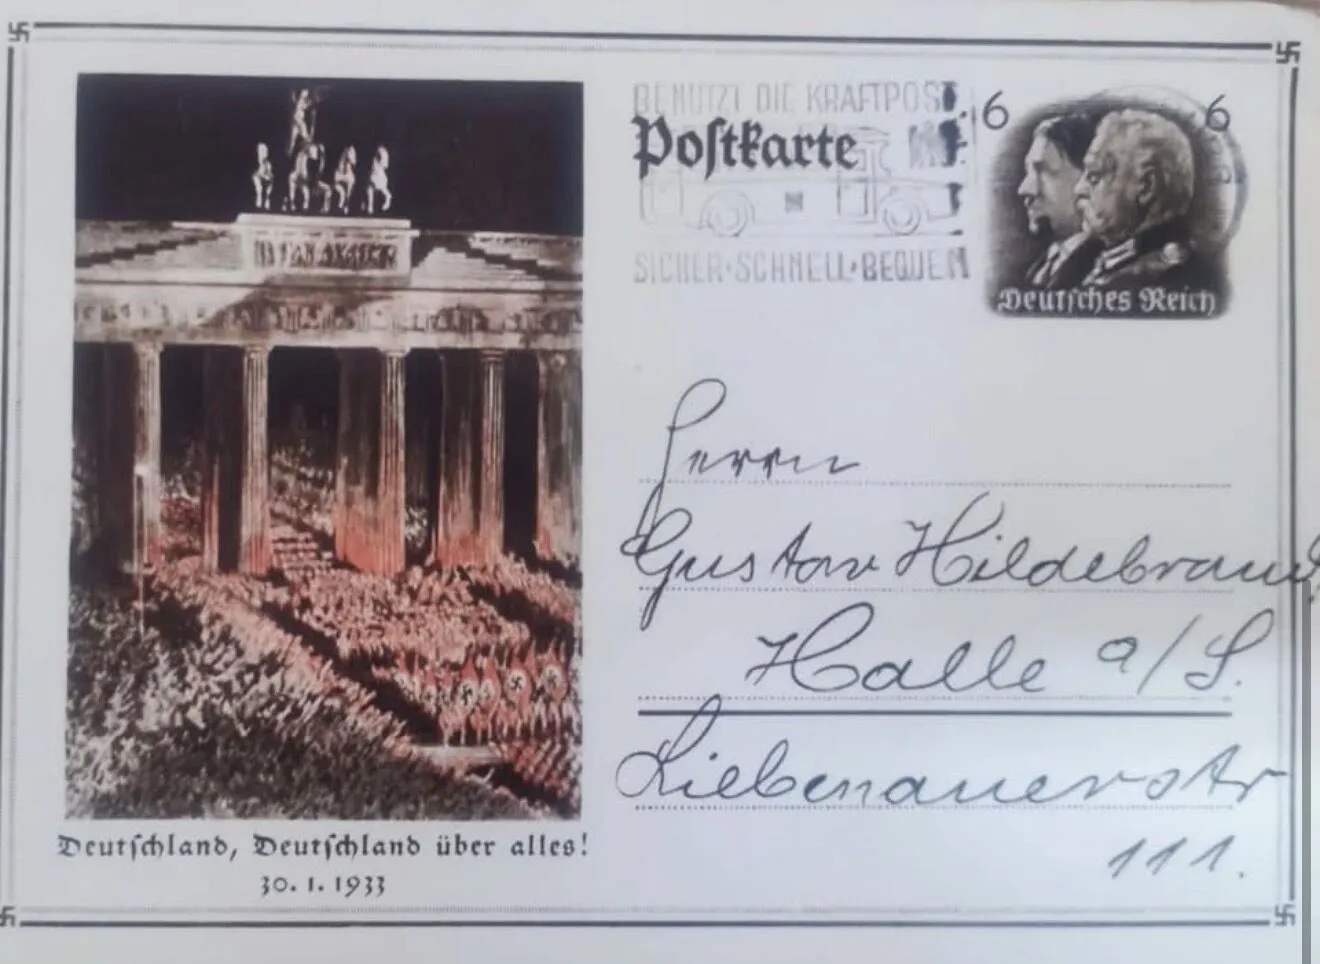 BENUTZT DIE KRAFTPOST
Postkarte
SICHER·SCHNELL·BEQUEM
6 6
Deutsches Reich
Herrn
Gustav Hildebrand
Halle a/S.
Liebenauerstr
111.
Deutschland, Deutschland über alles!
30. 1. 1933